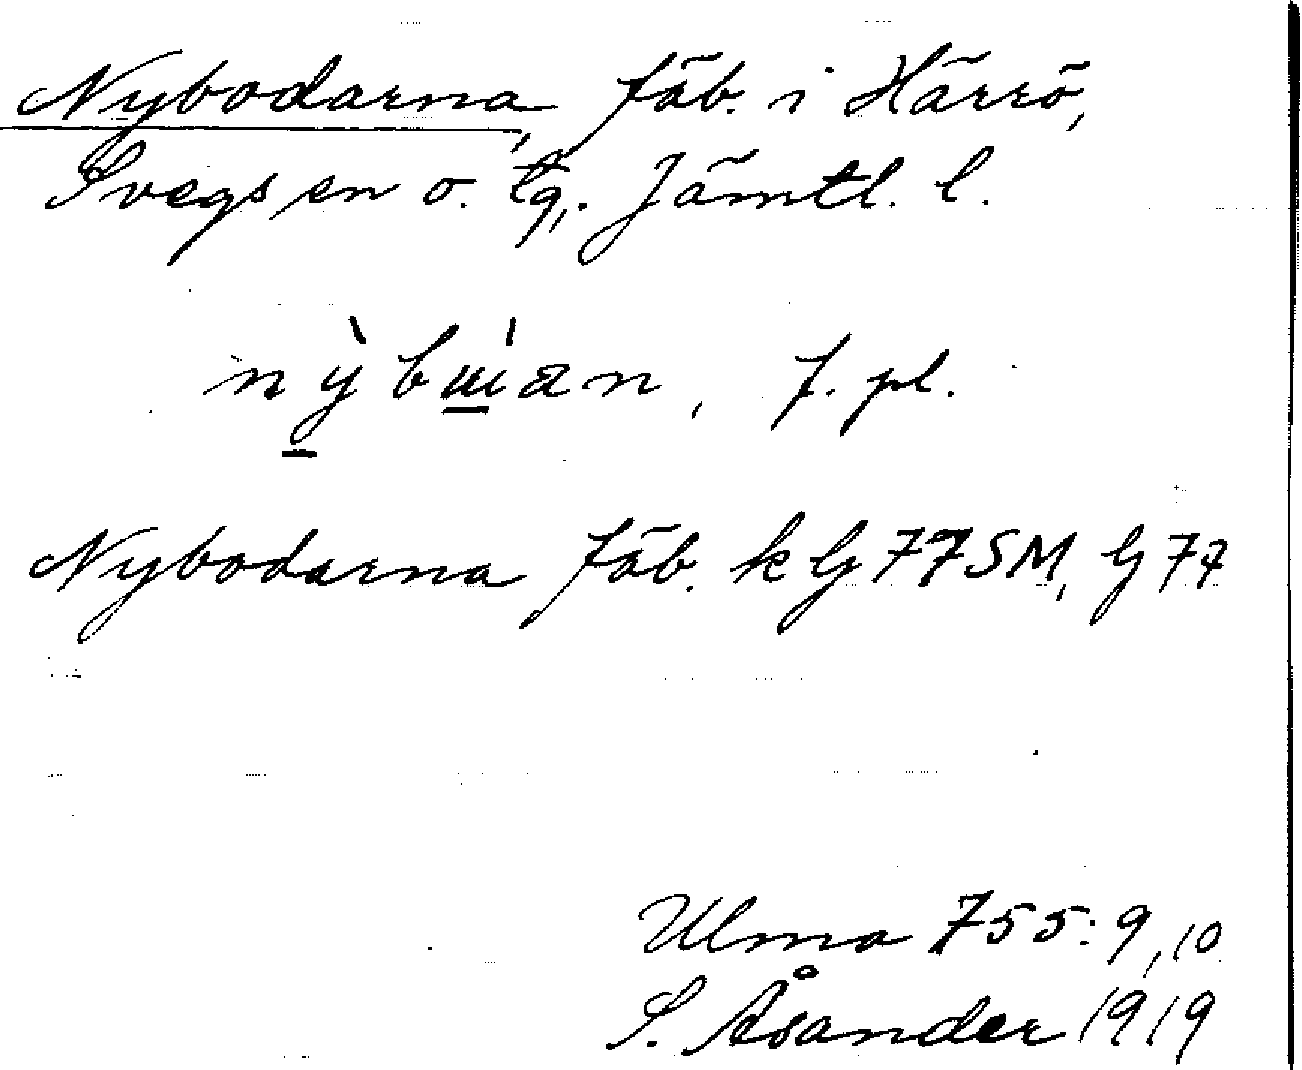 Nybodarna, fäb. i Härrö,
Svegs sn o. tg, Jämtl. l.
nỳbɯ̀an, f. pl.
Nybodarna fäb. k G 77 SM, G 77
Ulma 755: 9, 10
S. Åsander 1919